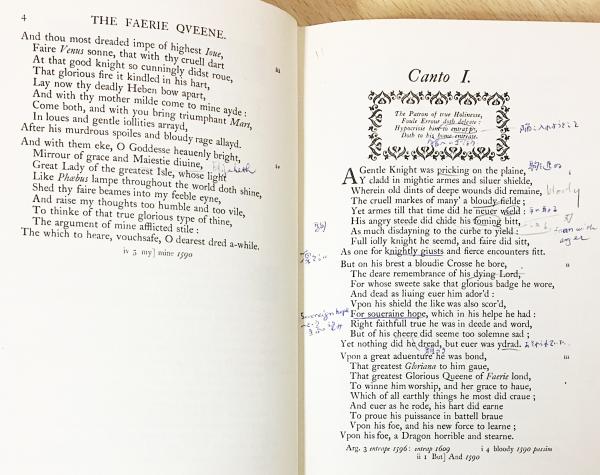 4
THE FAERIE QVEENE.
And thou most dreaded impe of highest Ioue,
Faire Venus sonne, that with thy cruell dart
At that good knight so cunningly didst roue,
iii
That glorious fire it kindled in his hart,
Lay now thy deadly Heben bow apart,
And with thy mother milde come to mine ayde :
Come both, and with you bring triumphant Mart,
In loues and gentle iollities arrayd,
After his murdrous spoiles and bloody rage allayd.
And with them eke, O Goddesse heauenly bright,
iv
Mirrour of grace and Maiestie diuine,
Great Lady of the greatest Isle, whose light
Like Phœbus lampe throughout the world doth shine,
Shed thy faire beames into my feeble eyne,
And raise my thoughts too humble and too vile,
To thinke of that true glorious type of thine,
The argument of mine afflicted stile :
The which to heare, vouchsafe, O dearest dred a-while.
iv 5 my] mine 1590
Canto I.
The Patron of true Holinesse,
Foule Errour doth defeate :
Hypocrisie him to entrappe,
Doth to his home entreate.
A Gentle Knight was pricking on the plaine,
Y cladd in mightie armes and siluer shielde,
Wherein old dints of deepe wounds did remaine,
bloody
The cruell markes of many' a bloudy fielde ;
Yet armes till that time did he neuer wield :
His angry steede did chide his foming bitt,
As much disdayning to the curbe to yield :
foam with anger
Full iolly knight he seemd, and faire did sitt,
As one for knightly giusts and fierce encounters fitt.
But on his brest a bloudie Crosse he bore,
ii
The deare remembrance of his dying Lord,
For whose sweete sake that glorious badge he wore,
And dead as liuing euer him ador'd :
Vpon his shield the like was also scor'd,
Sovereign hope
For soueraine hope, which in his helpe he had :
Right faithfull true he was in deede and word,
But of his cheere did seeme too solemne sad ;
Yet nothing did he dread, but euer was ydrad.
Vpon a great aduenture he was bond,
iii
That greatest Gloriana to him gaue,
That greatest Glorious Queene of Faerie lond,
To winne him worship, and her grace to haue,
Which of all earthly things he most did craue ;
And euer as he rode, his hart did earne
To proue his puissance in battell braue
Vpon his foe, and his new force to learne ;
Vpon his foe, a Dragon horrible and stearne.
Arg. 3 entrope 1596: entrap 1609
i 4 bloody 1590 passim
ii 1 But] And 1590